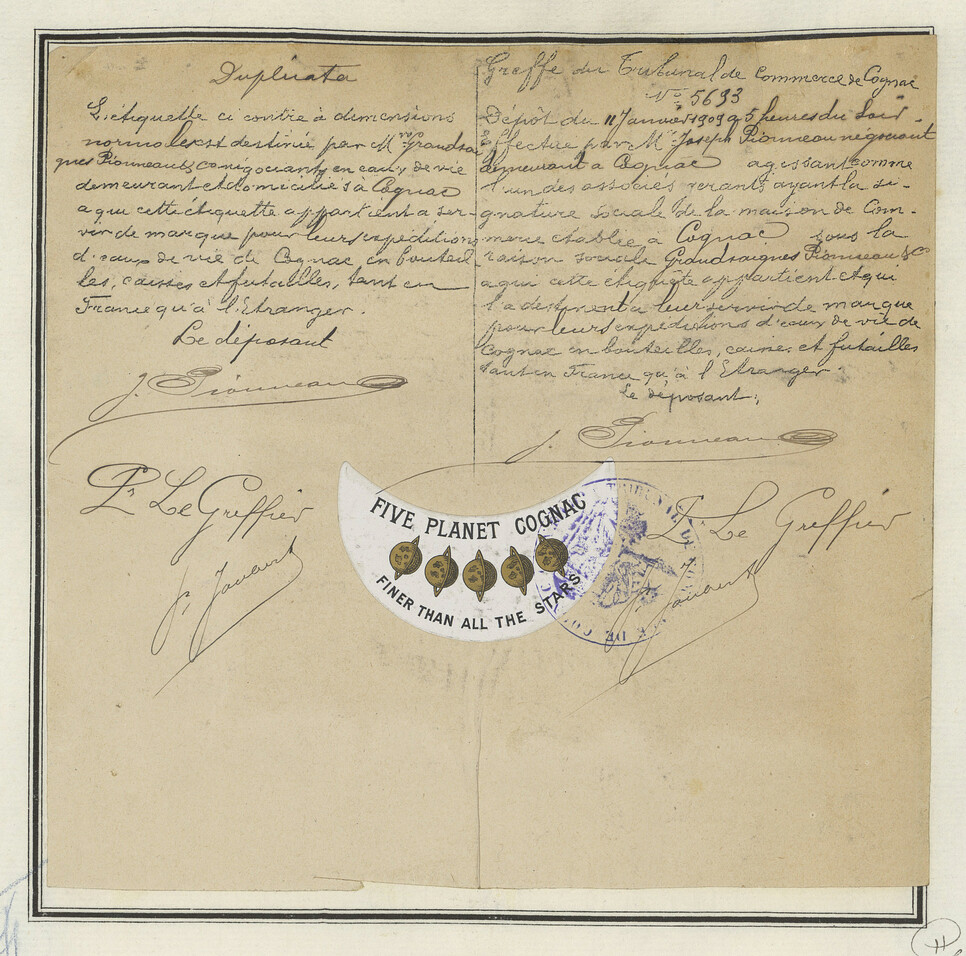 Duplicata
L'étiquette ci contre à dimensions
normales est destinée par Mrs Grandsai
gnes Pionneau & co négociants en eaux de vie
demeurant et domiciliés à Cognac
a qui cette étiquette appartient a ser-
vir de marque pour leurs expéditions
d'eaux de vie de Cognac en bouteil
les, caisses et futailles, tant en
France qu'à l'Etranger.
Le déposant
J. Pionneau
Pr Le Greffier
Greffe du Tribunal de Commerce de Cognac
No 5693
Dépôt du 11 Janvier 1909 a 5 heures du Soir
Effectué par Mr Joseph Pionneau négociant
demeurant a Cognac agissant comme
l'un des associés gérants ayant la si-
gnature sociale de la maison de Com-
merce etablie a Cognac sous la
raison sociale Grandsaignes Pionneau & Co
a qui cette étiquête appartient et qui
la destinent a leur servir de marque
pour leurs expéditions d'eaux de vie de
Cognac en bouteilles, caisses et futailles
tant en France qu'à l'Etranger.
Le déposant,
J. Pionneau
P Le Greffier
FIVE PLANET COGNAC
FINER THAN ALL THE STARS
H